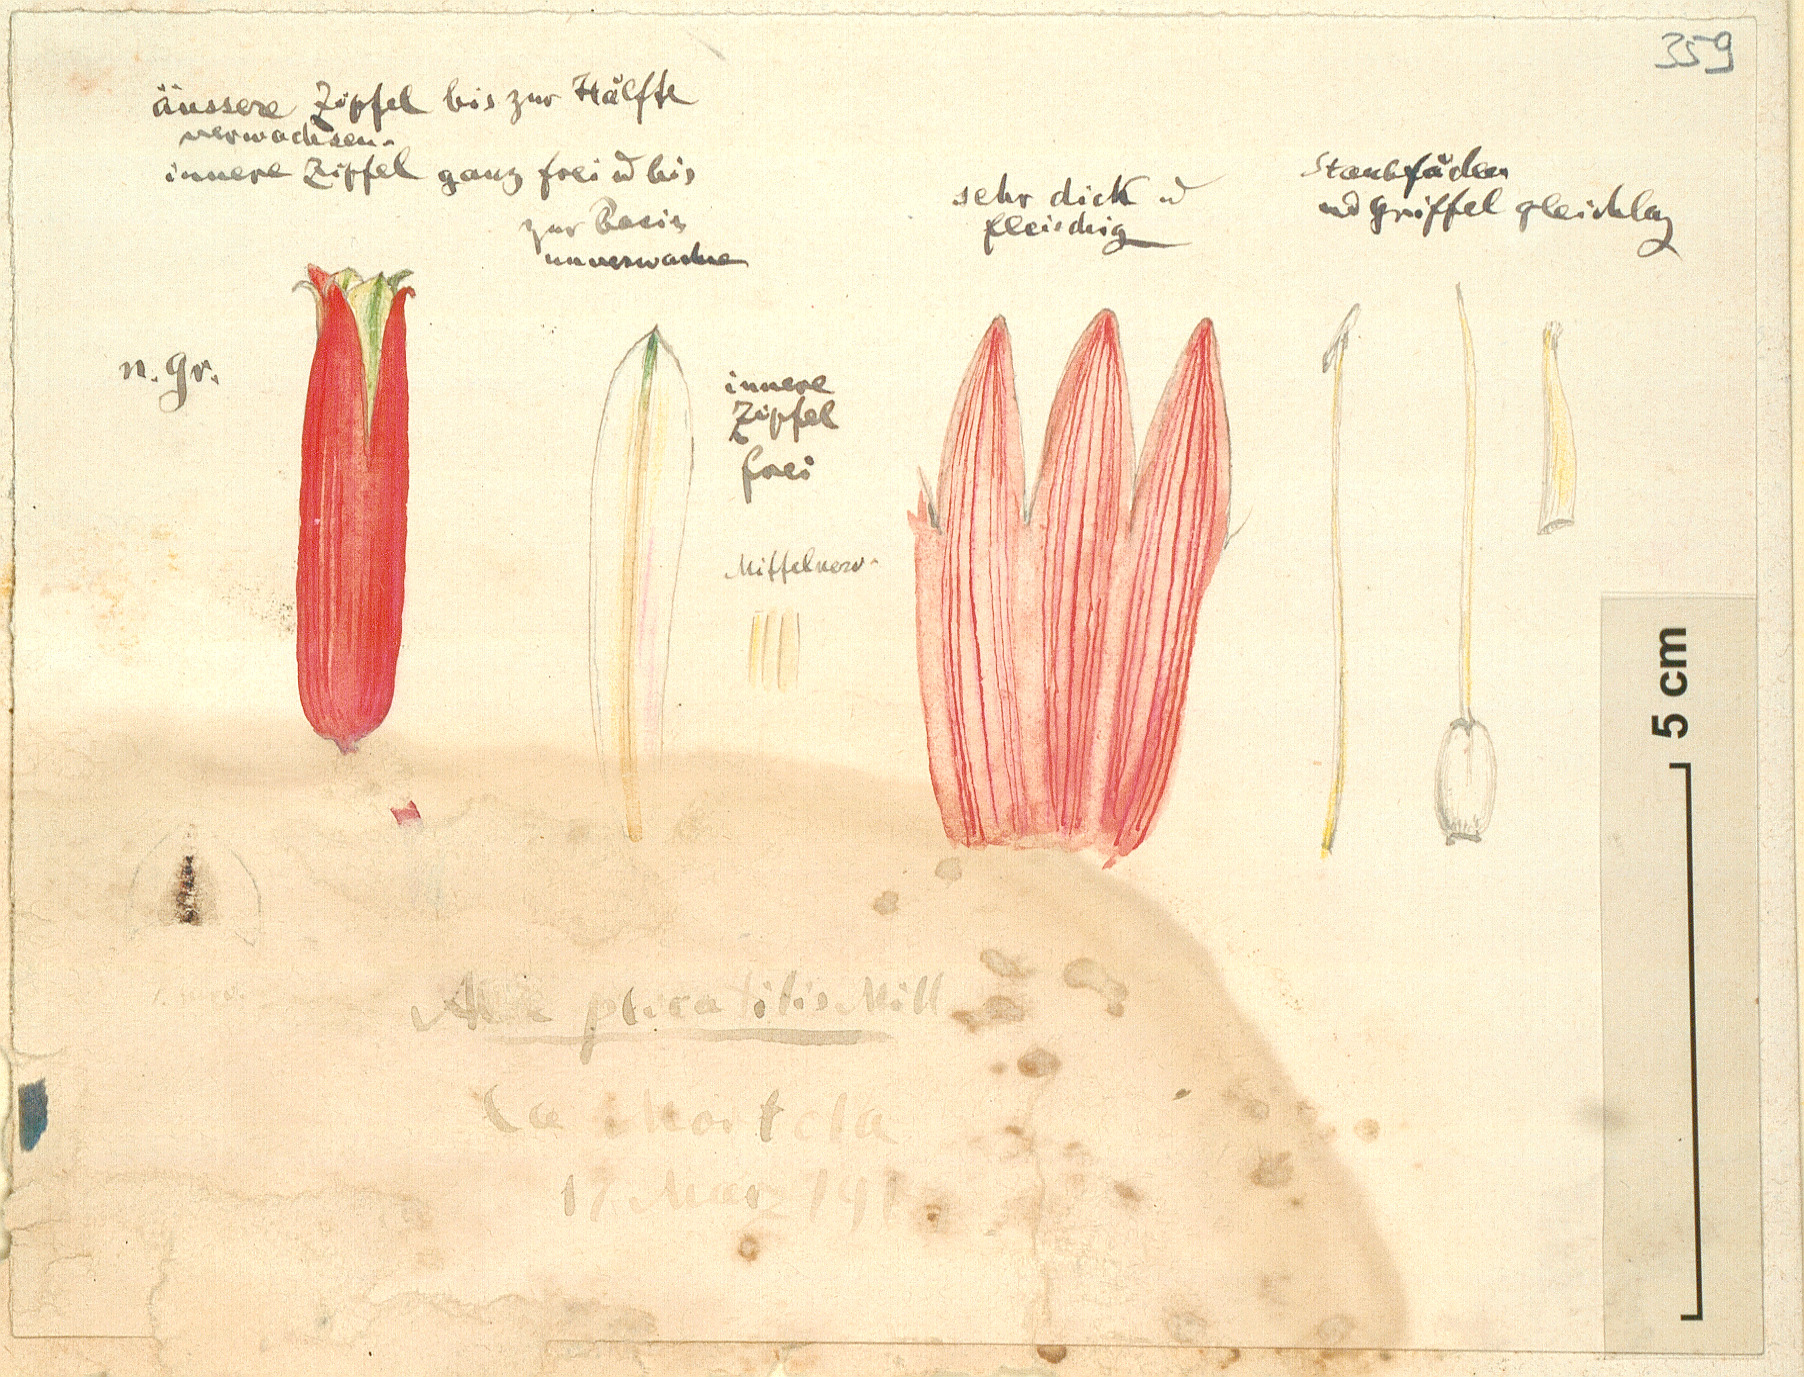 359
äussere Zipfel bis zur Hälfte
verwachsen.
innere Zipfel ganz frei ud bis
zur Basis
unverwachse
sehr dick ud
fleischig
Staubfäden
ud Griffel gleichlg
n. gr.
innere
Zipfel
frei
Mittelnerv.
5 cm
plicatilis Mill
La Mortola
17 März 191